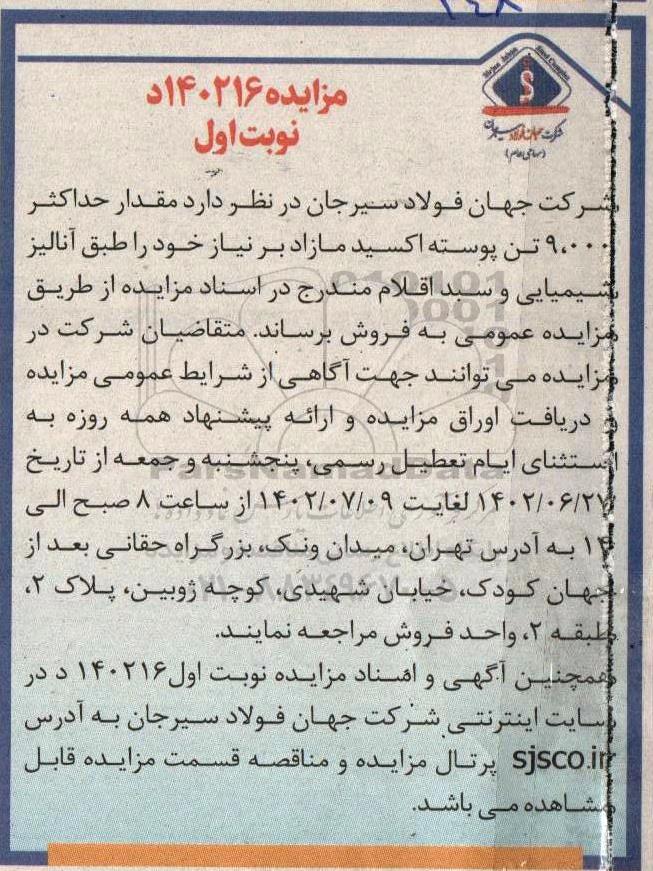 ۲۶۸
Sirjan Jahan Steel Complex
شرکت جهان فولاد سیرجان
(سهامی عام)
مزایده ۱۴۰۲۱۶د
نوبت اول
شرکت جهان فولاد سیرجان در نظر دارد مقدار حداکثر
۹،۰۰۰ تن پوسته اکسید مازاد بر نیاز خود را طبق آنالیز
شیمیایی و سبد اقلام مندرج در اسناد مزایده از طریق
مزایده عمومی به فروش برساند. متقاضیان شرکت در
مزایده می توانند جهت آگاهی از شرایط عمومی مزایده
و دریافت اوراق مزایده و ارائه پیشنهاد همه روزه به
استثنای ایام تعطیل رسمی، پنجشنبه و جمعه از تاریخ
۱۴۰۲/۰۶/۲۷ لغایت ۱۴۰۲/۰۷/۰۹ از ساعت ۸ صبح الی
۱۴ به آدرس تهران، میدان ونک، بزرگراه حقانی بعد از
جهان کودک، خیابان شهیدی، کوچه ژوبین، پلاک ۲،
طبقه ۲، واحد فروش مراجعه نمایند.
همچنین آگهی و اسناد مزایده نوبت اول ۱۴۰۲۱۶ د در
سایت اینترنتی شرکت جهان فولاد سیرجان به آدرس
sjsco.ir پرتال مزایده و مناقصه قسمت مزایده قابل
مشاهده می باشد.
ParsNamadData